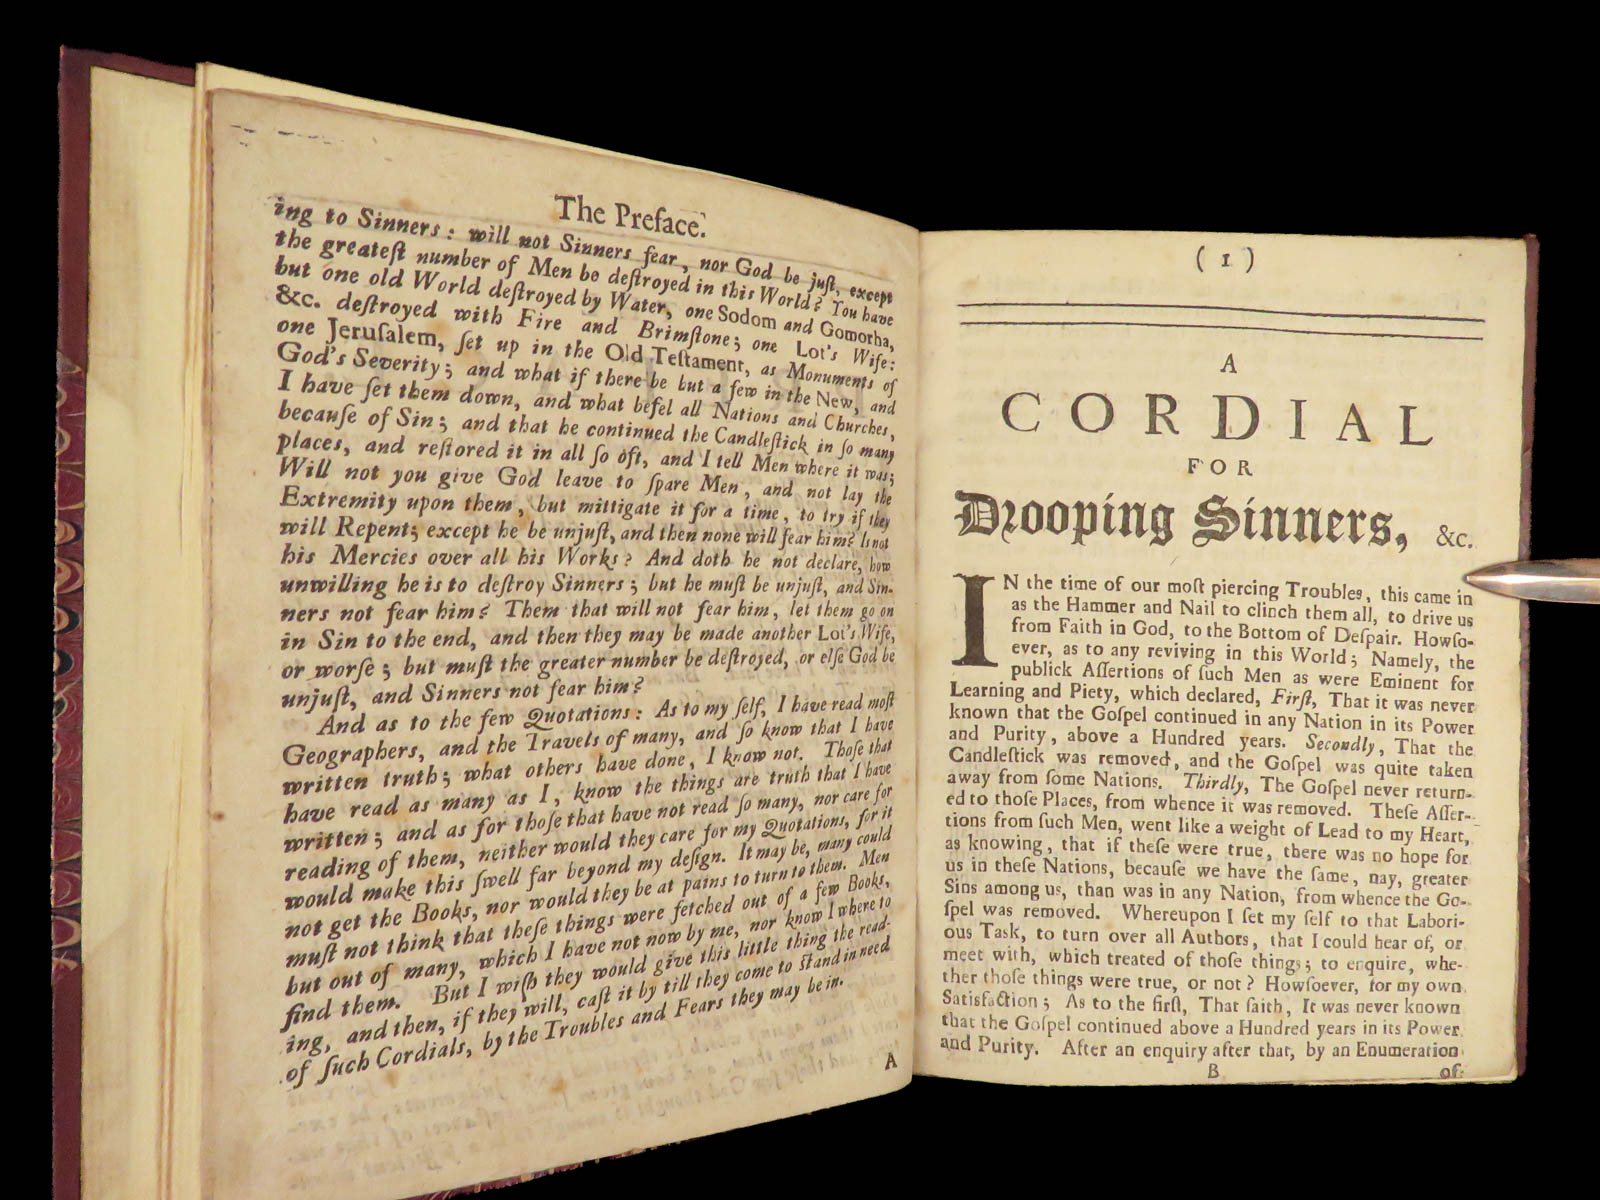 The Preface.
ing to Sinners : will not Sinners fear, nor God be juſt, except
the greateſt number of Men be deſtroyed in this World? You have
but one old World deſtroyed by Water, one Sodom and Gomorha,
&c. deſtroyed with Fire and Brimſtone; one Lot's Wife:
one Jeruſalem, ſet up in the Old Teſtament, as Monuments of
God's Severity; and what if there be but a few in the New, and
I have ſet them down, and what befel all Nations and Churches,
becauſe of Sin; and that he continued the Candleſtick in ſo many
places, and reſtored it in all ſo oft, and I tell Men where it was;
Will not you give God leave to ſpare Men, and not lay the
Extremity upon them, but mittigate it for a time, to try if they
will Repent; except he be unjuſt, and then none will fear him? Is not
his Mercies over all his Works? And doth he not declare, how
unwilling he is to deſtroy Sinners; but he muſt be unjuſt, and Sin-
ners not fear him? Them that will not fear him, let them go on
in Sin to the end, and then they may be made another Lot's Wife,
or worſe; but muſt the greater number be deſtroyed, or elſe God be
unjuſt, and Sinners not fear him?
And as to the few Quotations: As to my ſelf, I have read moſt
Geographers, and the Travels of many, and ſo know that I have
written truth; what others have done, I know not. Thoſe that
have read as many as I, know the things are truth that I have
written; and as for thoſe that have not read ſo many, nor care for
reading of them, neither would they care for my Quotations, for it
would make this ſwell far beyond my deſign. It may be, many could
not get the Books, nor would they be at pains to turn to them. Men
muſt not think that theſe things were fetched out of a few Books,
but out of many, which I have not now by me, nor know I where to
find them. But I wiſh they would give this little thing the read-
ing, and then, if they will, caſt it by till they come to ſtand in need
of ſuch Cordials, by the Troubles and Fears they may be in.
A
( 1 )
A
CORDIAL
FOR
Drooping Sinners, &c.
IN the time of our moſt piercing Troubles, this came in
as the Hammer and Nail to clinch them all, to drive us
from Faith in God, to the Bottom of Deſpair. Howſo-
ever, as to any reviving in this World; Namely, the
publick Aſſertions of ſuch Men as were Eminent for
Learning and Piety, which declared, Firſt, That it was never
known that the Goſpel continued in any Nation in its Power
and Purity, above a Hundred years. Secondly, That the
Candleſtick was removed, and the Goſpel was quite taken
away from ſome Nations. Thirdly, The Goſpel never return-
ed to thoſe Places, from whence it was removed. Theſe Aſſer-
tions from ſuch Men, went like a weight of Lead to my Heart,
as knowing, that if theſe were true, there was no hope for
us in theſe Nations, becauſe we have the ſame, nay, greater
Sins among us, than was in any Nation, from whence the Go-
ſpel was removed. Whereupon I ſet my ſelf to that Labori-
ous Task, to turn over all Authors, that I could hear of, or
meet with, which treated of thoſe things; to enquire, whe-
ther thoſe things were true, or not? Howſoever, for my own
Satisfaction; As to the firſt, That ſaith, It was never known
that the Goſpel continued above a Hundred years in its Power
and Purity. After an enquiry after that, by an Enumeration
B
of